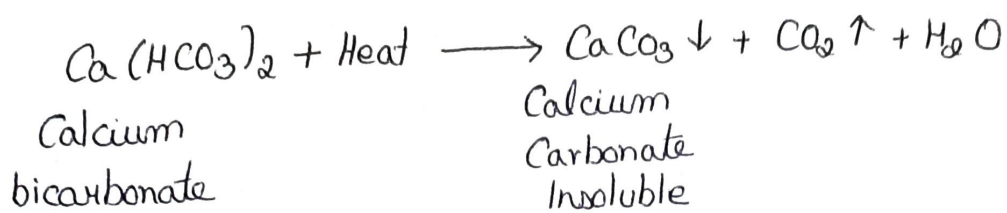 Ca(HCO₃)₂ + Heat ⟶ CaCO₃↓ + CO₂↑ + H₂O
Calcium bicarbonate
Calcium Carbonate Insoluble